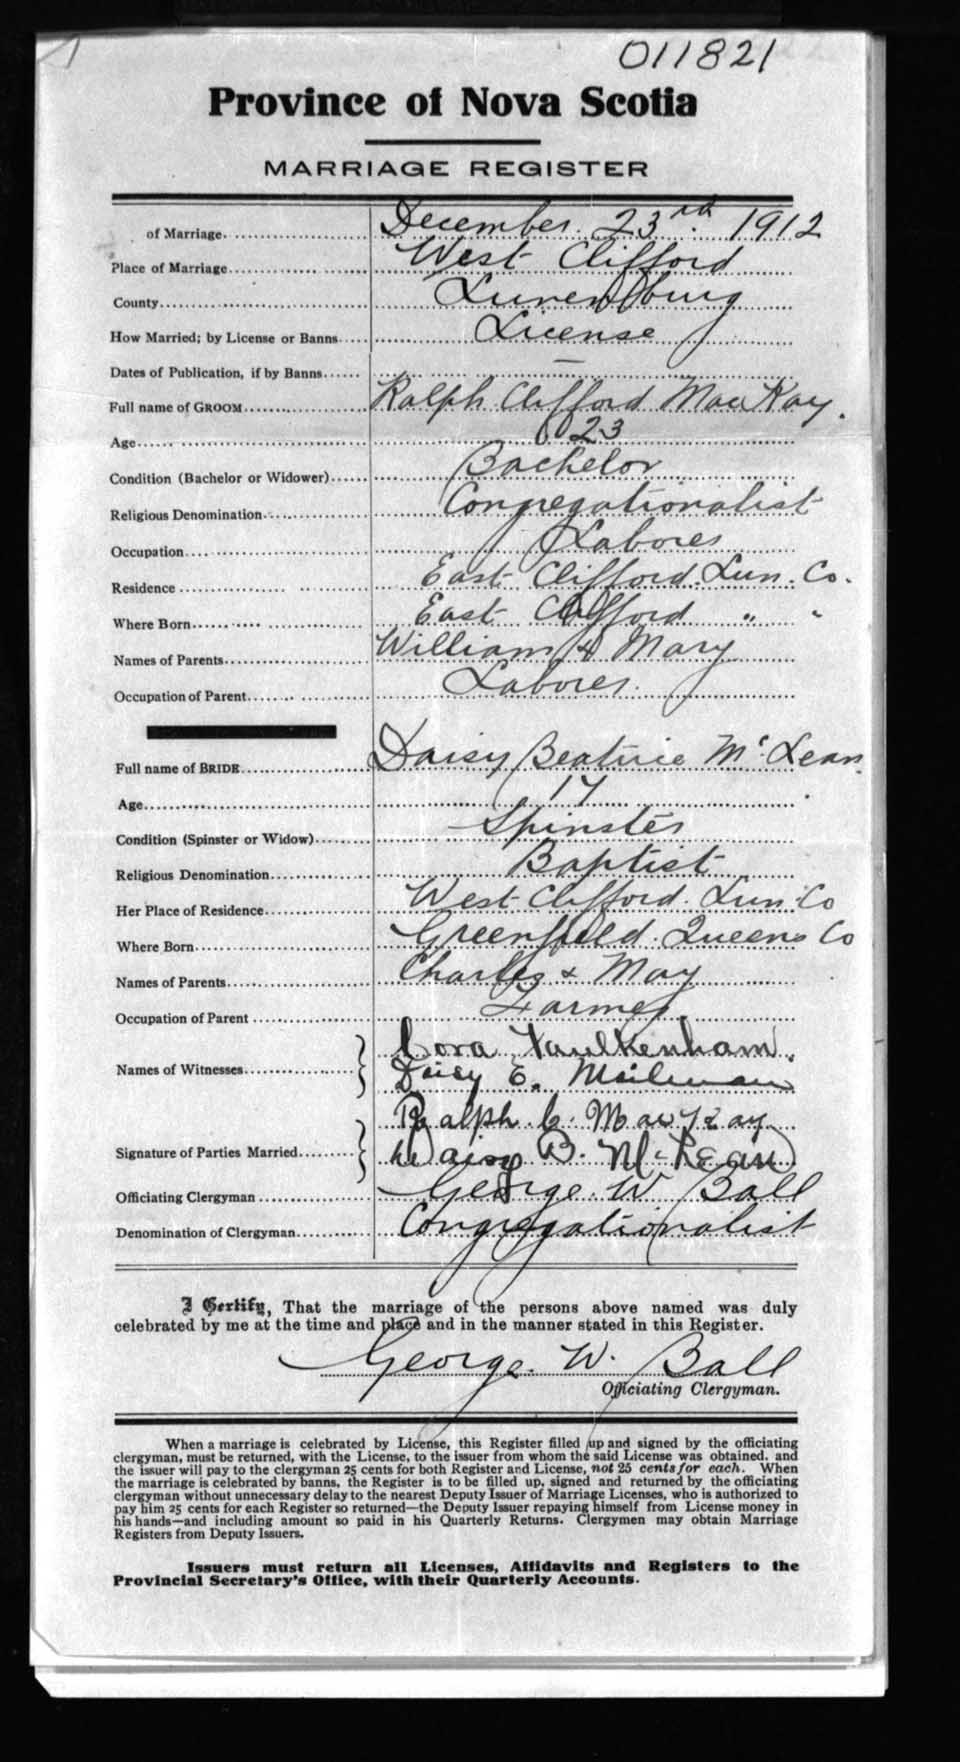 011821
Province of Nova Scotia
MARRIAGE REGISTER
of Marriage. December. 23rd. 1912
Place of Marriage West Clifford
County Lunenburg
How Married; by License or Banns License
Dates of Publication, if by Banns —
Full name of GROOM Ralph Clifford MacKay.
Age 23
Condition (Bachelor or Widower) Bachelor
Religious Denomination Congregationalist
Occupation Laborer
Residence East Clifford. Lun. Co.
Where Born East Clifford " "
Names of Parents William & Mary
Occupation of Parent Laborer.
Full name of BRIDE Daisy Beatrice Mc Lean.
Age 17
Condition (Spinster or Widow) Spinster
Religious Denomination Baptist
Her Place of Residence West Clifford. Lun. Co
Where Born Greenfield. Queens Co
Names of Parents Charles & May
Occupation of Parent Farmer
Names of Witnesses Cora Faulkenham.
Daisy E. Meilman
Ralph C. MacKay
Signature of Parties Married Daisy B. McLean
Officiating Clergyman George. W Ball
Denomination of Clergyman Congregationalist
I Certify, That the marriage of the persons above named was duly
celebrated by me at the time and place and in the manner stated in this Register.
George. W. Ball
Officiating Clergyman.
When a marriage is celebrated by License, this Register filled up and signed by the officiating
clergyman, must be returned, with the License, to the issuer from whom the said License was obtained. and
the issuer will pay to the clergyman 25 cents for both Register and License, not 25 cents for each. When
the marriage is celebrated by banns, the Register is to be filled up, signed and returned by the officiating
clergyman without unnecessary delay to the nearest Deputy Issuer of Marriage Licenses, who is authorized to
pay him 25 cents for each Register so returned—the Deputy Issuer repaying himself from License money in
his hands—and including amount so paid in his Quarterly Returns. Clergymen may obtain Marriage
Registers from Deputy Issuers.
Issuers must return all Licenses, Affidavits and Registers to the
Provincial Secretary's Office, with their Quarterly Accounts.